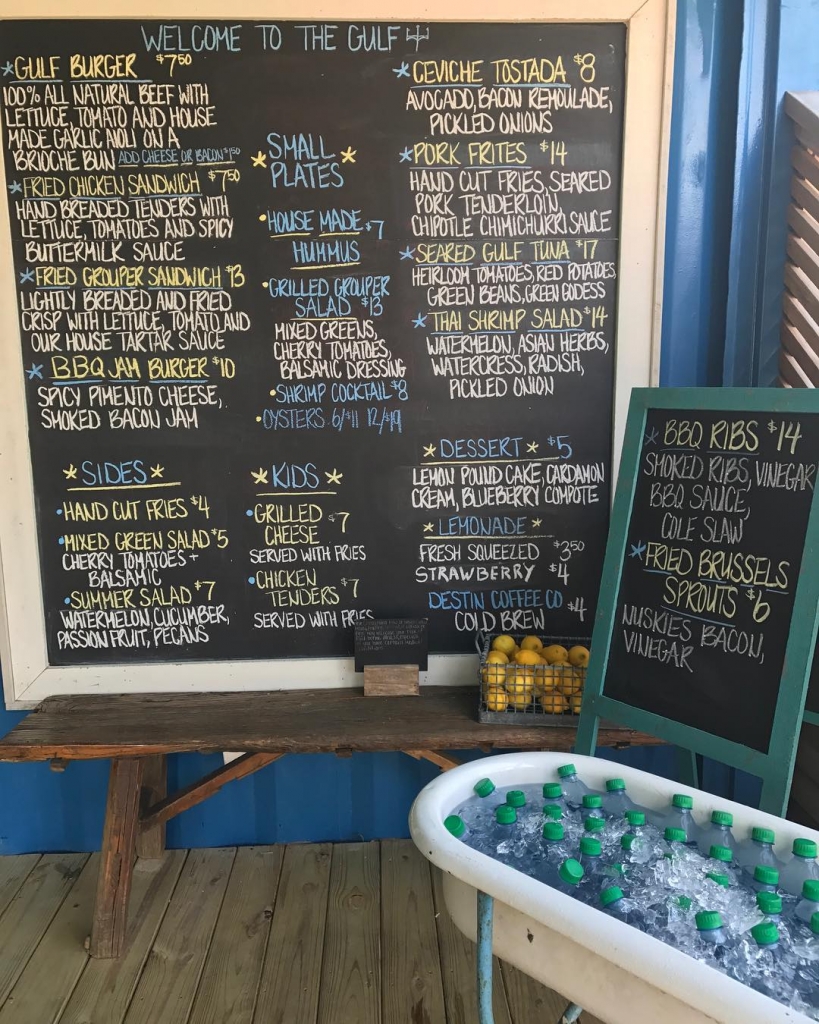 WELCOME TO THE GULF
*GULF BURGER $7.50
100% ALL NATURAL BEEF WITH
LETTUCE, TOMATO AND HOUSE
MADE GARLIC AIOLI ON A
BRIOCHE BUN ADD CHEESE OR BACON $1.50
*FRIED CHICKEN SANDWICH $7.50
HAND BREADED TENDERS WITH
LETTUCE, TOMATOES AND SPICY
BUTTERMILK SAUCE
*FRIED GROUPER SANDWICH $13
LIGHTLY BREADED AND FRIED
CRISP WITH LETTUCE, TOMATO AND
OUR HOUSE TARTAR SAUCE
*BBQ JAM BURGER $10
SPICY PIMENTO CHEESE,
SMOKED BACON JAM
*SIDES*
•HAND CUT FRIES $4
•MIXED GREEN SALAD $5
CHERRY TOMATOES +
BALSAMIC
•SUMMER SALAD $7
WATERMELON, CUCUMBER,
PASSION FRUIT, PECANS
*SMALL
PLATES*
•HOUSE MADE $7
HUMMUS
•GRILLED GROUPER
SALAD $13
MIXED GREENS,
CHERRY TOMATOES,
BALSAMIC DRESSING
•SHRIMP COCKTAIL $8
•OYSTERS 6/$11 12/$19
*KIDS*
•GRILLED
CHEESE $7
SERVED WITH FRIES
•CHICKEN
TENDERS $7
SERVED WITH FRIES
*CEVICHE TOSTADA $8
AVOCADO, BACON REMOULADE,
PICKLED ONIONS
*PORK FRITES $14
HAND CUT FRIES, SEARED
PORK TENDERLOIN,
CHIPOTLE CHIMICHURRI SAUCE
*SEARED GULF TUNA $17
HEIRLOOM TOMATOES, RED POTATOES,
GREEN BEANS, GREEN GODESS
*THAI SHRIMP SALAD $14
WATERMELON, ASIAN HERBS,
WATERCRESS, RADISH,
PICKLED ONION
*DESSERT* $5
LEMON POUND CAKE, CARDAMON
CREAM, BLUEBERRY COMPOTE
*LEMONADE*
FRESH SQUEEZED $3.50
STRAWBERRY $4
DESTIN COFFEE CO
COLD BREW $4
*BBQ RIBS $14
SMOKED RIBS, VINEGAR
BBQ SAUCE,
COLE SLAW
*FRIED BRUSSELS
SPROUTS $6
NUSKIES BACON,
VINEGAR